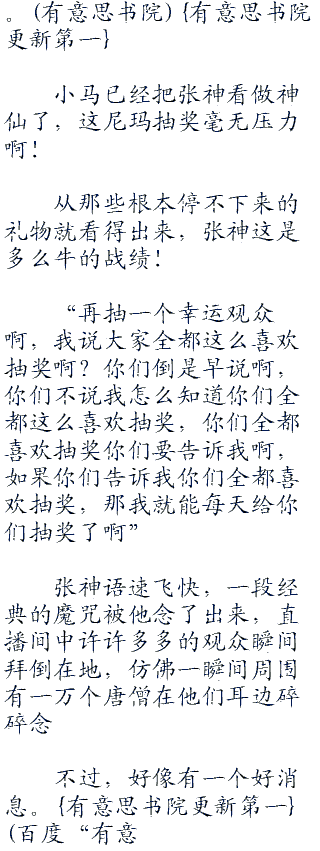 。(有意思书院) {有意思书院
更新第一}
小马已经把张神看做神
仙了，这尼玛抽奖毫无压力
啊！
从那些根本停不下来的
礼物就看得出来，张神这是
多么牛的战绩！
“再抽一个幸运观众
啊，我说大家全都这么喜欢
抽奖啊？你们倒是早说啊，
你们不说我怎么知道你们全
都这么喜欢抽奖，你们全都
喜欢抽奖你们要告诉我啊，
如果你们告诉我你们全都喜
欢抽奖，那我就能每天给你
们抽奖了啊”
张神语速飞快，一段经
典的魔咒被他念了出来，直
播间中许许多多的观众瞬间
拜倒在地，仿佛一瞬间周围
有一万个唐僧在他们耳边碎
碎念
不过，好像有一个好消
息。{有意思书院更新第一}
(百度“有意